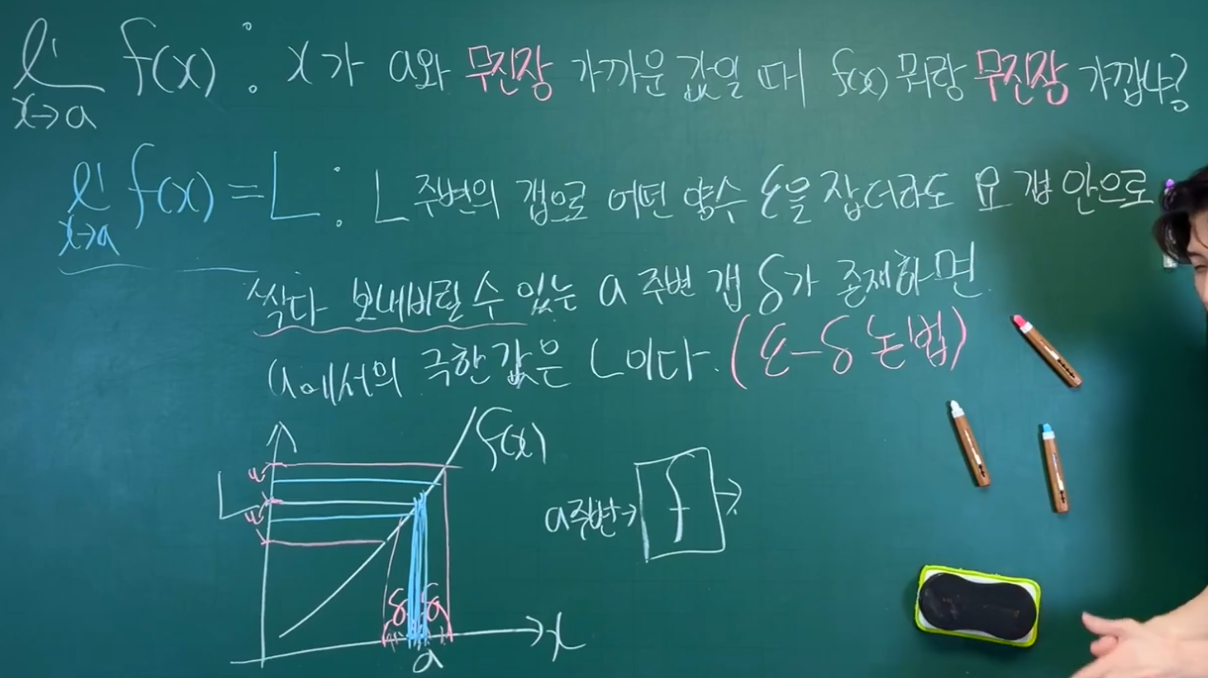 lim f(x) : x가 a와 무진장 가까운 값일 때 f(x) 뭐랑 무진장 가깝냐?
x→a
lim f(x) = L : L 주변의 갭으로 어떤 양수 ε을 잡더라도 요 갭 안으로
x→a
싹다 보내버릴 수 있는 a 주변 갭 δ가 존재하면
a에서의 극한값은 L이다. (ε-δ 논법)
f(x)
ε
L
ε
a주변→ f →
δ δ
a
x